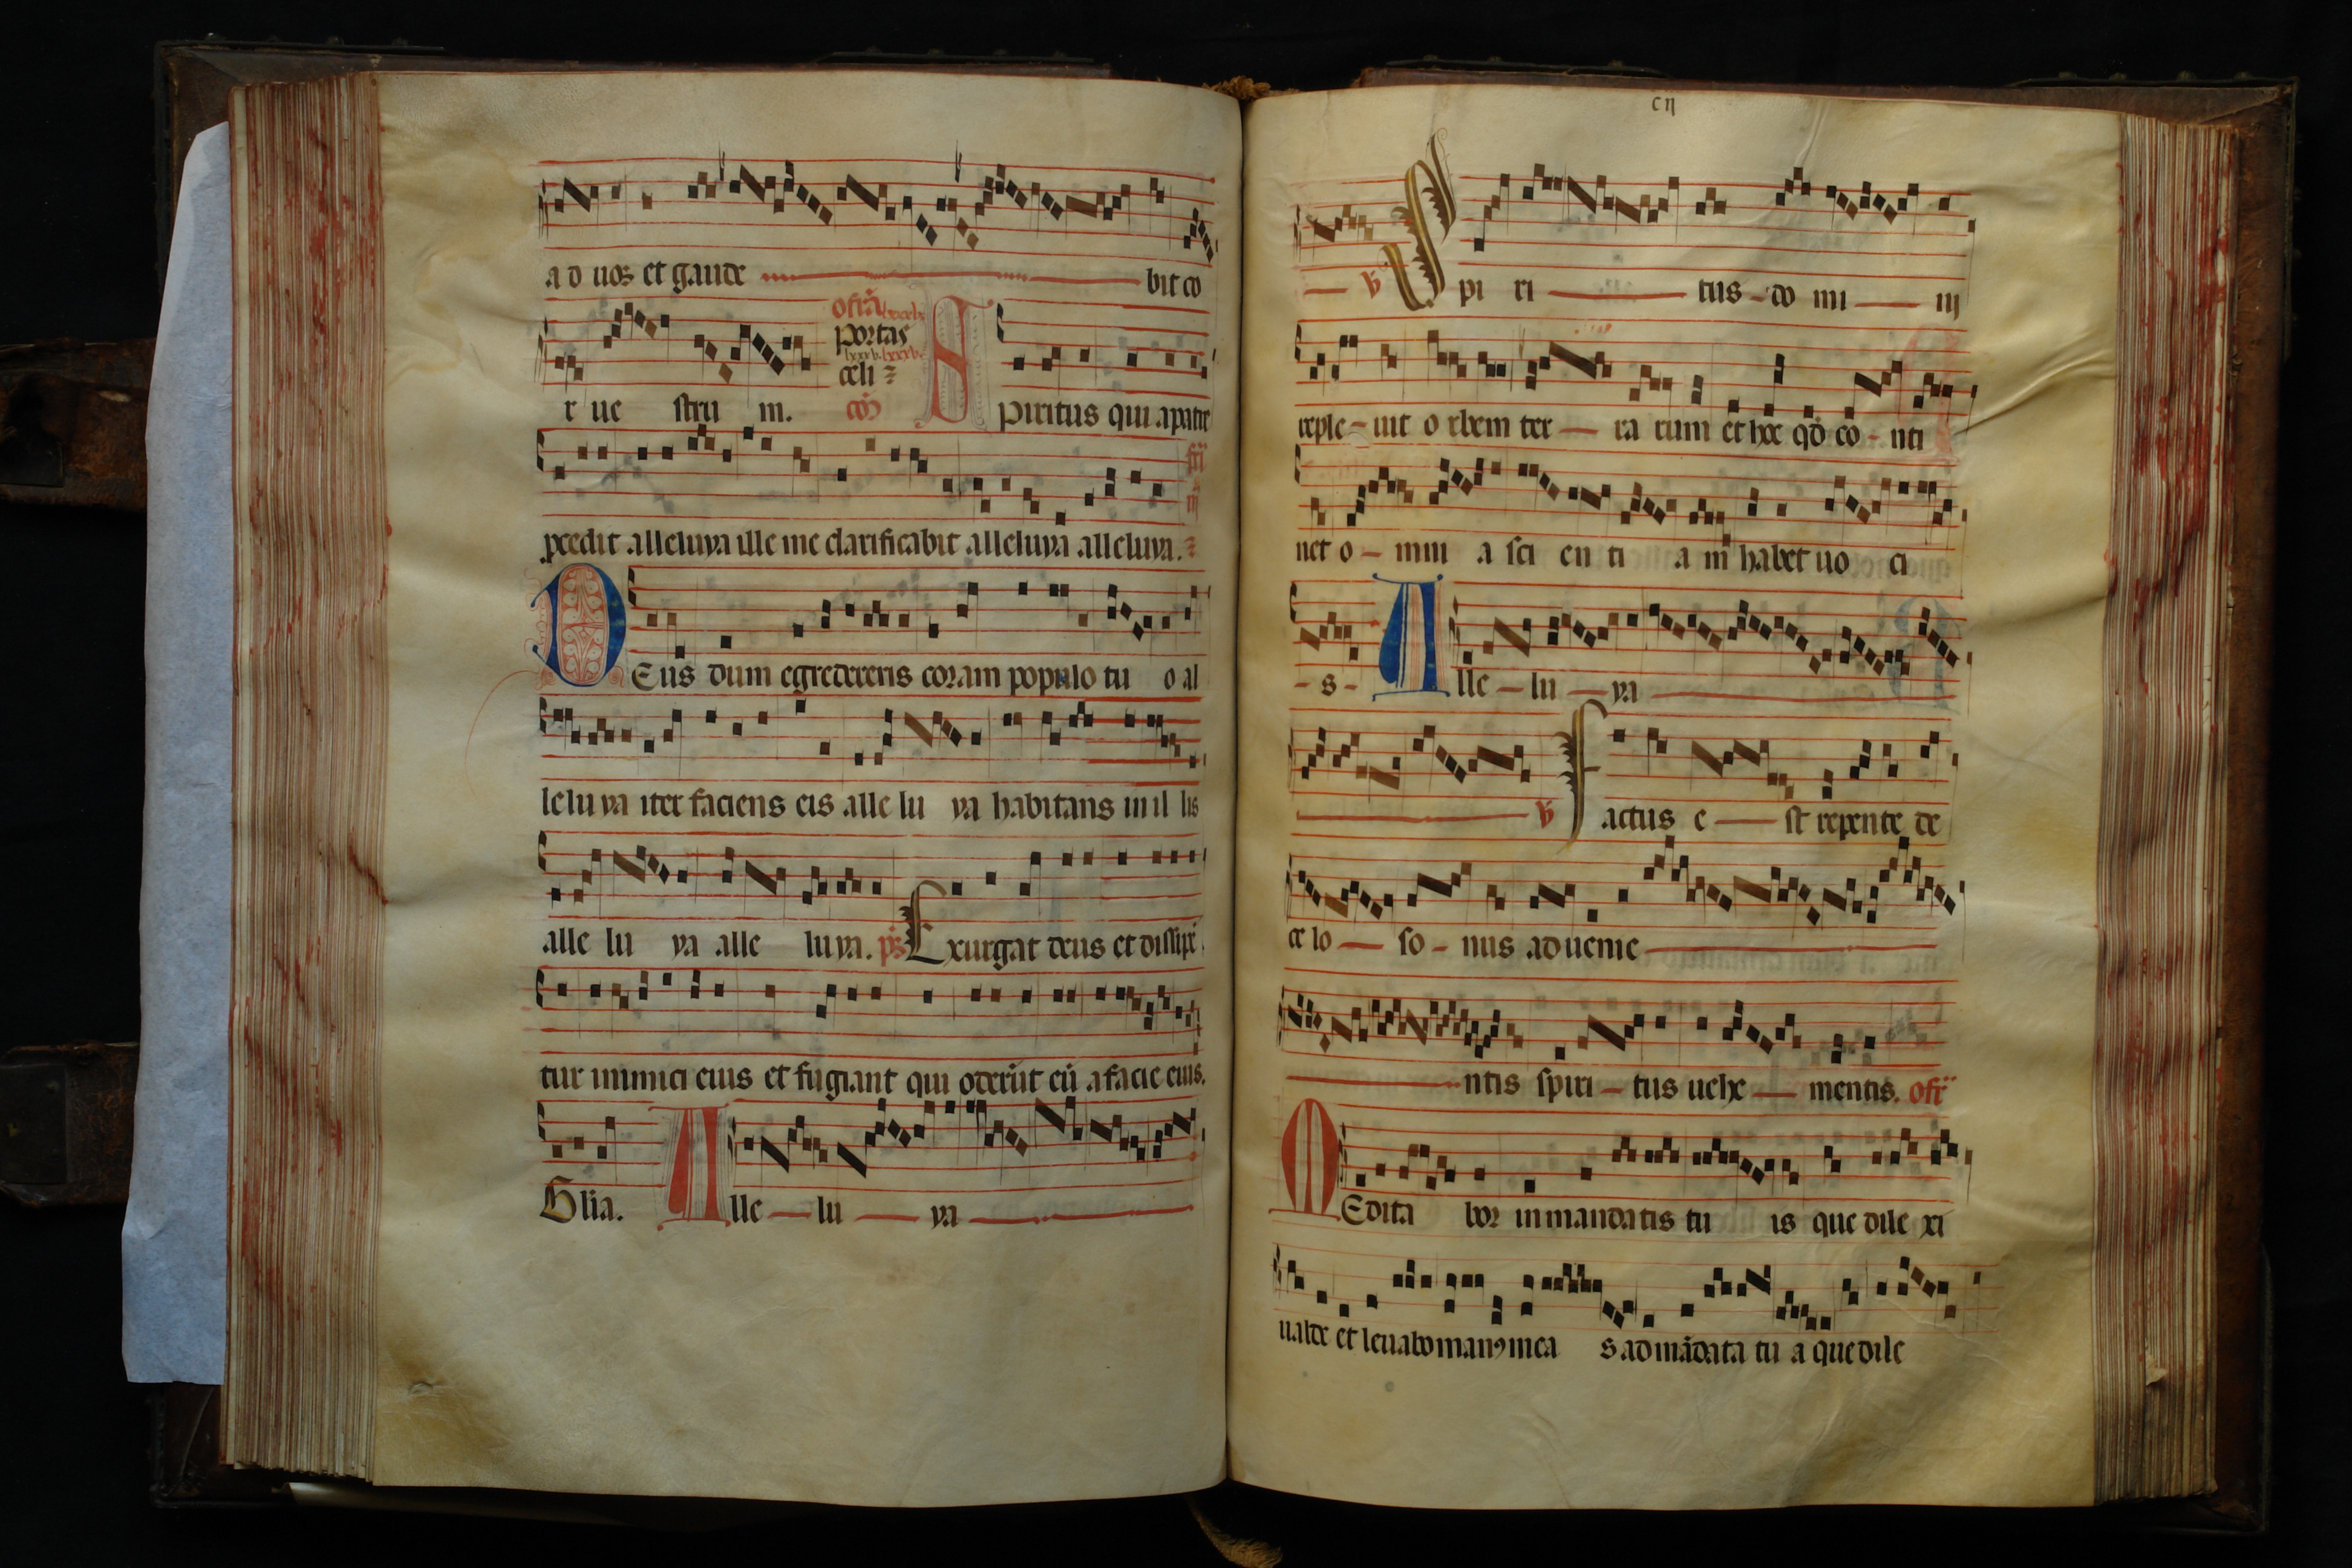 ad uos et gaude bit co
ofra
portas
celi
r ue stru m. co Spiritus qui a patre
fr iij
pcedit alleluya ille me clarificabit alleluya alleluya.
Deus dum egredereris coram populo tu o al
lelu ya iter faciens eis alle lu ya habitans in il lis
alle lu ya alle lu ya. ps Exurgat deus et dissipe
tur inimici eius et fugiant qui oderūt eū a facie eius.
Glia. Alle lu ya
cij
℣ Spi ri tus do mi ni
reple uit o rbem ter ra rum et hoc qd co nti
net o mni a sci en ti a m habet uo ci
s Alle lu ya
℣ Factus e st repente de
ce lo so nus aduenie
ntis spiri tus uehe mentis. ofr
Medita bor in mandatis tu is que dile xi
ualde et leuabo manꝰ mea s ad mādata tu a que dile